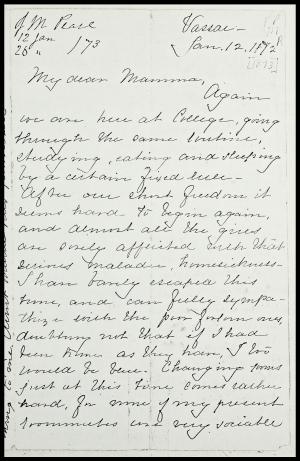 J. M. Pease
12 Jan
26 "
/73
Vassar
Jan. 12, 1872
[1873]
My dear Mamma,
Again
we are here at College, going
through the same routine,
studying, eating and sleeping
by a certain fixed rule -
After our short freedom it
seems hard to begin again,
and almost all the girls
are sorely afflicted with that
serious malady, homesickness -
I have barely escaped this
time, and can fully sympa-
thize with the poor forlorn ones
doubting not that if I had
been home as they have, I too
would be blue. Changing rooms
just at this time comes rather
hard, for none of my present
roommates are very sociable